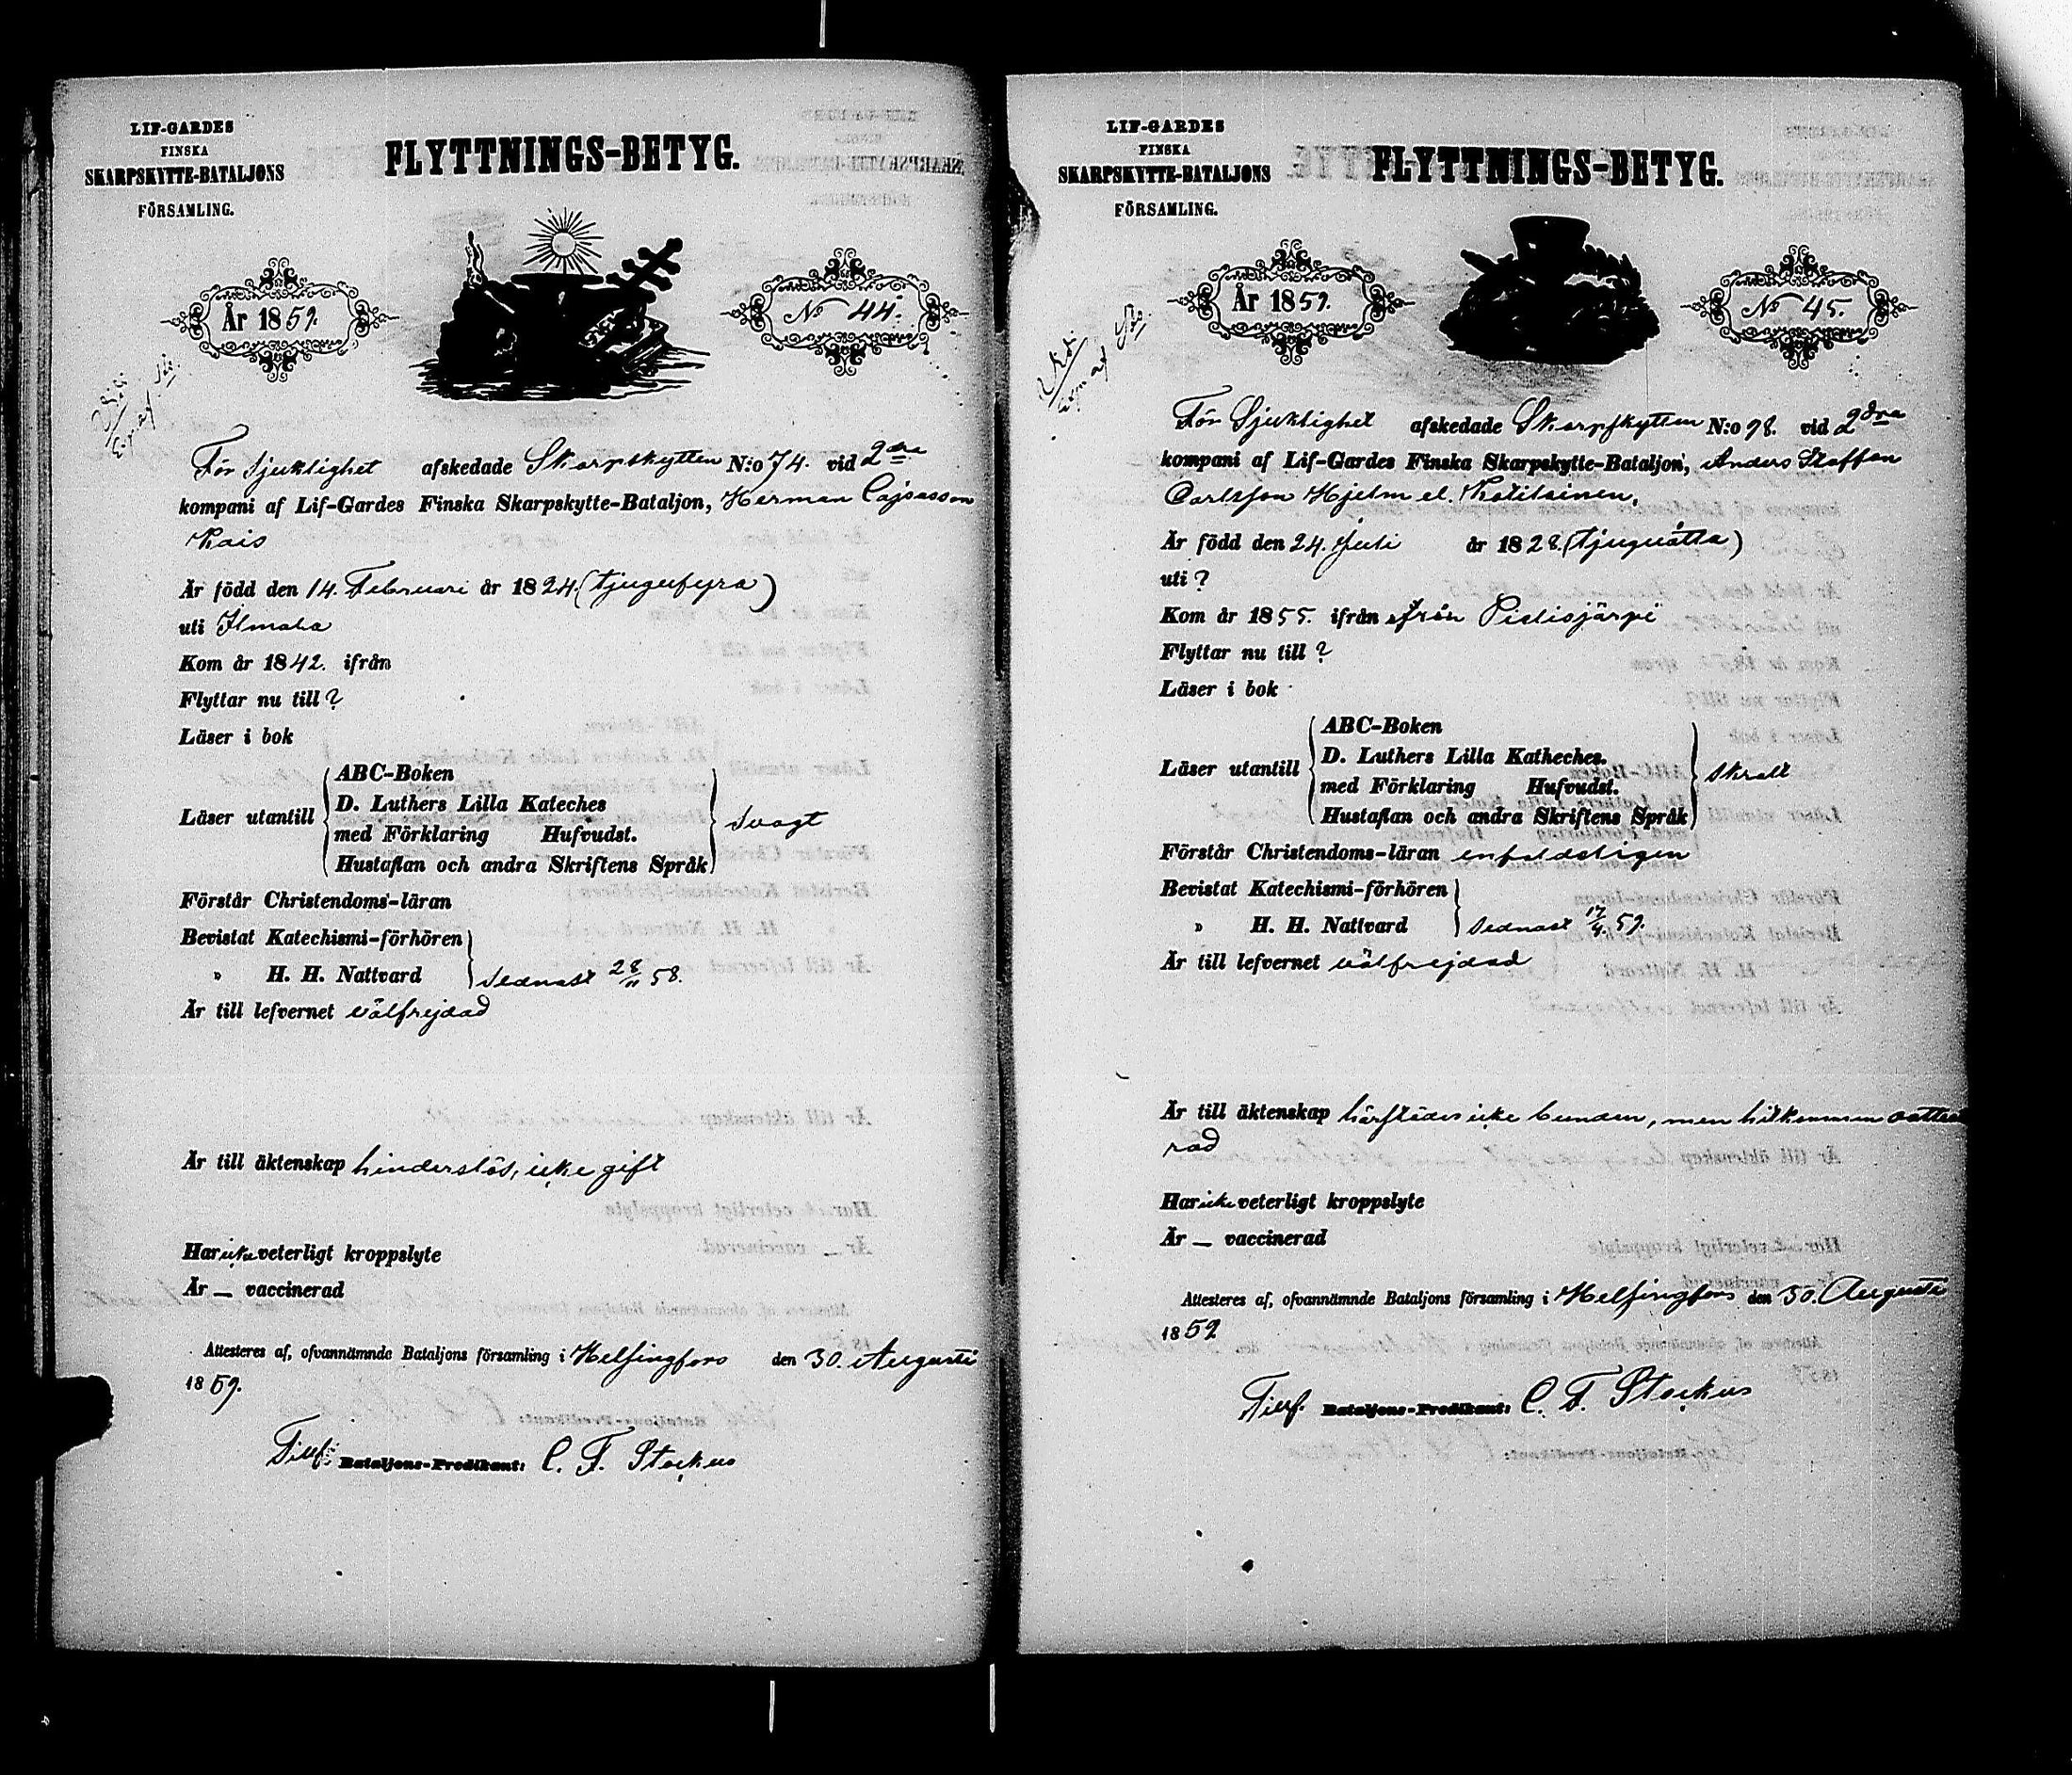 LIF-GARDES
FINSKA
SKARPSKYTTE-BATALJONS
FÖRSAMLING.
FLYTTNINGS-BETYG.
År 1859.
No 44.
För Sjuklighet afskedade Skarpskytten N:o 74. vid 2dra
kompani af Lif-Gardes Finska Skarpskytte-Bataljon, Herman Cajsasson
Kais
Är född den 14. Februari år 1824. (tjugufyra)
uti Ilmola
Kom år 1842. ifrån
Flyttar nu till ?
Läser i bok
Läser utantill
ABC-Boken
D. Luthers Lilla Kateches
med Förklaring Hufvudst.
Hustaflan och andra Skriftens Språk
svagt
Förstår Christendoms-läran
Bevistat Katechismi-förhören
" H. H. Nattvard
sednast 28/11 58.
Är till lefvernet välfrejdad
Är till äktenskap hinderslös, icke gift
Har icke veterligt kroppslyte
Är — vaccinerad
Attesteras af, ofvannämnde Bataljons församling i Helsingfors den 30. Augusti
1859.
Tillf. Bataljons-Predikant: C. F. Stockus
LIF-GARDES
FINSKA
SKARPSKYTTE-BATALJONS
FÖRSAMLING.
FLYTTNINGS-BETYG.
År 1859.
No 45.
För Sjuklighet afskedade Skarpskytten N:o 98. vid 2dra
kompani af Lif-Gardes Finska Skarpskytte-Bataljon, Anders Staffan
Carlsson Hjelm el.
Är född den 24. Juli år 1828. (tjuguåtta)
uti ?
Kom år 1855. ifrån från Pidisjärpi
Flyttar nu till ?
Läser i bok
Läser utantill
ABC-Boken
D. Luthers Lilla Katheches.
med Förklaring Hufvudst.
Hustaflan och andra Skriftens Språk
skralt
Förstår Christendoms-läran enfaldeligen
Bevistat Katechismi-förhören
" H. H. Nattvard
sednast 17/4. 59.
Är till lefvernet välfrejdad
Är till äktenskap härstädes icke bunden, men hitkommen
rad
Har icke veterligt kroppslyte
Är — vaccinerad
Attesteres af, ofvannämnde Bataljons församling i Helsingfors den 30. Augusti
1859
Tillf. Bataljons-Predikant: C. F. Stockus